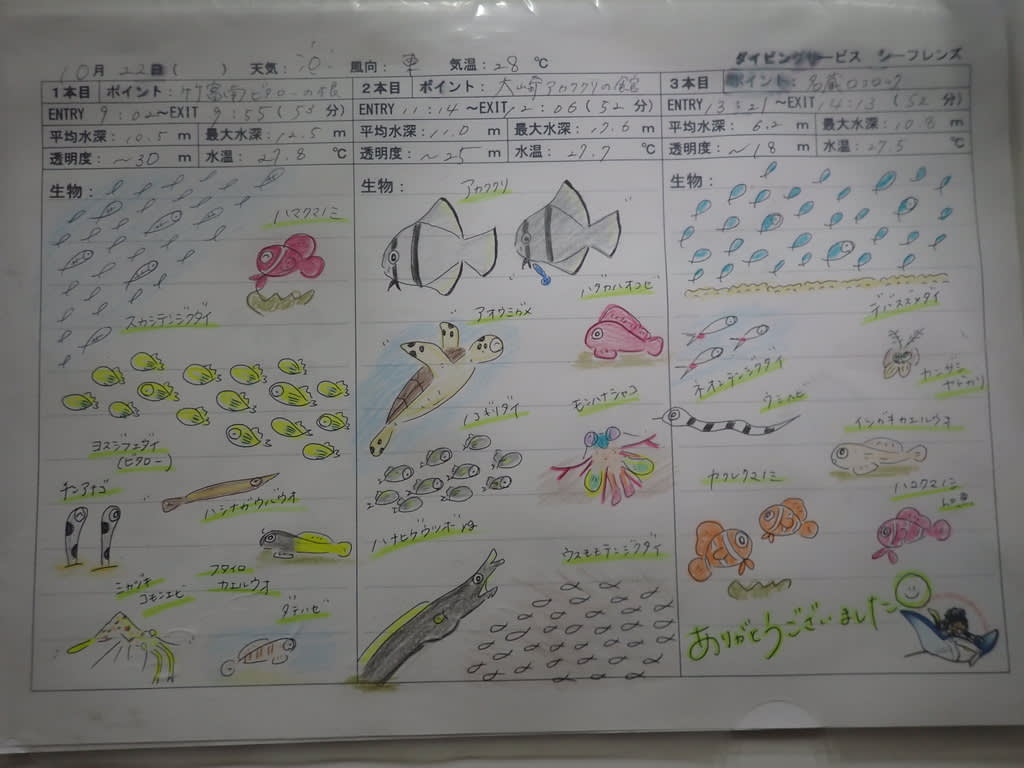 ダイビングサービス シーフレンズ
10月 22日( ) 天気: 風向: 東 気温: 28 ℃
1本目 ポイント: 竹富南ビタローの根
ENTRY 9:02〜EXIT 9:55(53分)
平均水深: 10.5 m 最大水深: 12.5 m
透明度: 〜30 m 水温: 27.8 ℃
生物:
ハマクマノミ
スカシテンジクダイ
ヨスジフエダイ
(ビタロー)
チンアナゴ
ハシナガウバウオ
フタイロ
カエルウオ
ミカヅキ
コモンエビ
ダテハゼ
2本目 ポイント: 大崎アカククリの館
ENTRY 11:14〜EXIT 12:06(52分)
平均水深: 11.0 m 最大水深: 17.6 m
透明度: 〜25 m 水温: 27.7 ℃
生物:
アカククリ
ハダカハオコゼ
アオウミガメ
ノコギリダイ
モンハナシャコ
ハナヒゲウツボ
ウスモモテンジクダイ
3本目 ポイント: 名蔵
ENTRY 13:21〜EXIT 14:13(52分)
平均水深: 6.2 m 最大水深: 10.8 m
透明度: 〜18 m 水温: 27.5 ℃
生物:
デバスズメダイ
ネオンテンジクダイ
カンザシ
ヤドカリ
ウミヘビ
イシガキカエルウオ
カクレクマノミ
ハマクマノミ
ありがとうございました